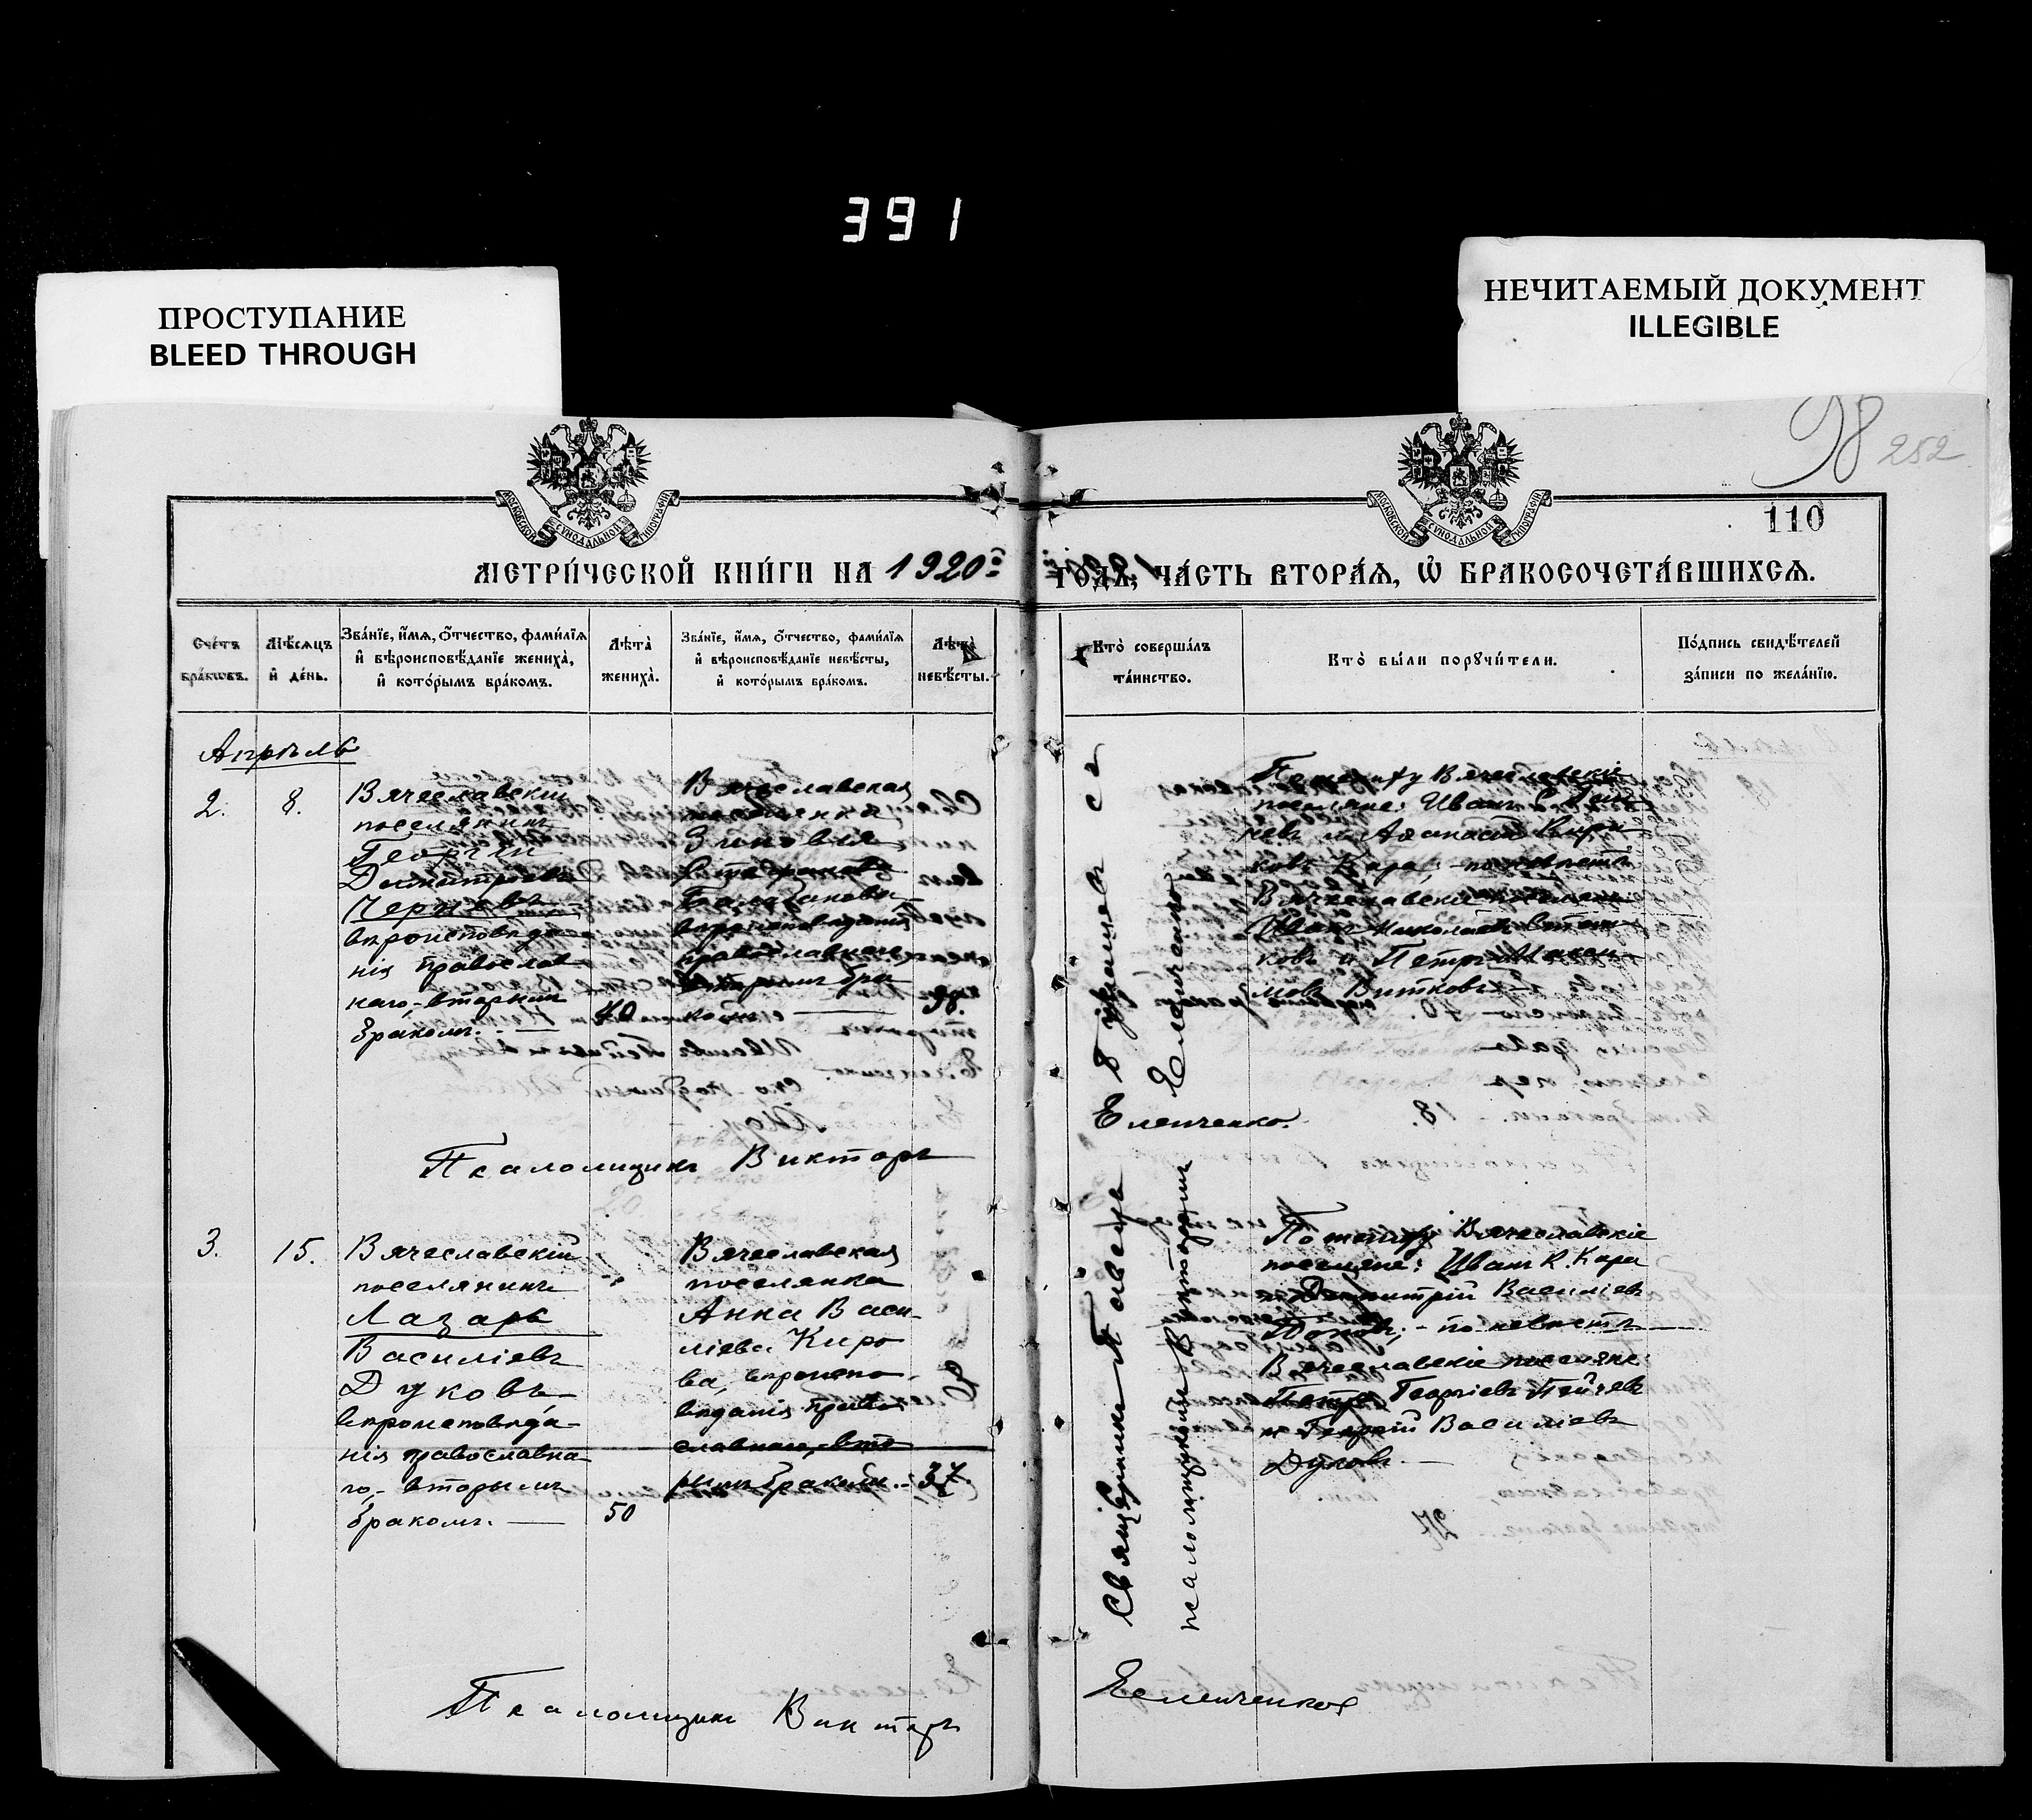 391
ПРОСТУПАНИЕ
BLEED THROUGH
НЕЧИТАЕМЫЙ ДОКУМЕНТ
ILLEGIBLE
98 252
МОСКОВСКОЙ СѴНОДАЛЬНОЙ ТИПОГРАФІИ
МОСКОВСКОЙ СѴНОДАЛЬНОЙ ТИПОГРАФІИ
110
МЕТРИ́ЧЕСКОЙ КНИ́ГИ НА 1920
ГОДЪ, ЧА́СТЬ ВТОРА́Ѧ, Ѡ҆ БРАКОСОЧЕТА́ВШИХСѦ.
Сче́тъ
бра́ковъ.
Мѣ́сѧцъ
и҆ де́нь.
Зва́нїе, и҆́мѧ, ѻ҆́тчество, фами́лїѧ
и҆ вѣроисповѣ́данїе жениха̀,
и҆ кото́рымъ бра́комъ.
Лѣ́та
жениха̀.
Зва́нїе, и҆́мѧ, ѻ҆́тчество, фами́лїѧ
и҆ вѣроисповѣ́данїе невѣ́сты,
и҆ кото́рымъ бра́комъ.
Лѣ́та
невѣ́сты.
Кто̀ соверша́лъ
та́инство.
Кто̀ бы́ли порꙋчи́тели.
По́дпись свидѣ́телей
за́писи по жела́нїю.
Апрѣль
2.
8.
Вячеславскій
поселянинъ
Георгій
Димитріевъ
вѣроисповѣда-
нія православ
наго, - вторымъ
бракомъ. —
40
Вячеславская
поселянка
Зиновія
вѣроисповѣданія
православнаго,
вторымъ бра
комъ —
38.
По жениху Вячеславскіе
поселяне: Иванъ
и Аѳанасій
Кара; - по невѣстѣ
Вячеславскіе поселяне
Иванъ Николаевъ
ковъ и Петръ Макси
мовъ Витковъ
Псаломщикъ Викторъ
Еленченко.
3.
15.
Вячеславскій
поселянинъ
Лазарь
Василіевъ
Дуковъ
вѣроисповѣда-
нія православна
го, - вторымъ
бракомъ. —
50
Вячеславская
поселянка
Анна Васи-
ліева Киро
ва, вѣроиспо-
вѣданія право
славнаго, вто
рымъ бракомъ. -
37.
Священникъ
псаломщикомъ Викторомъ
Еленченко
По жениху Вячеславскіе
поселяне: Иванъ К. Кара
и Димитрій Василіевъ
по невѣстѣ —
Вячеславскіе поселяне:
Петръ Георгіевъ Пейчевъ
и Георгій Василіевъ
Дуковъ. —
Псаломщикъ Викторъ
Еленченко